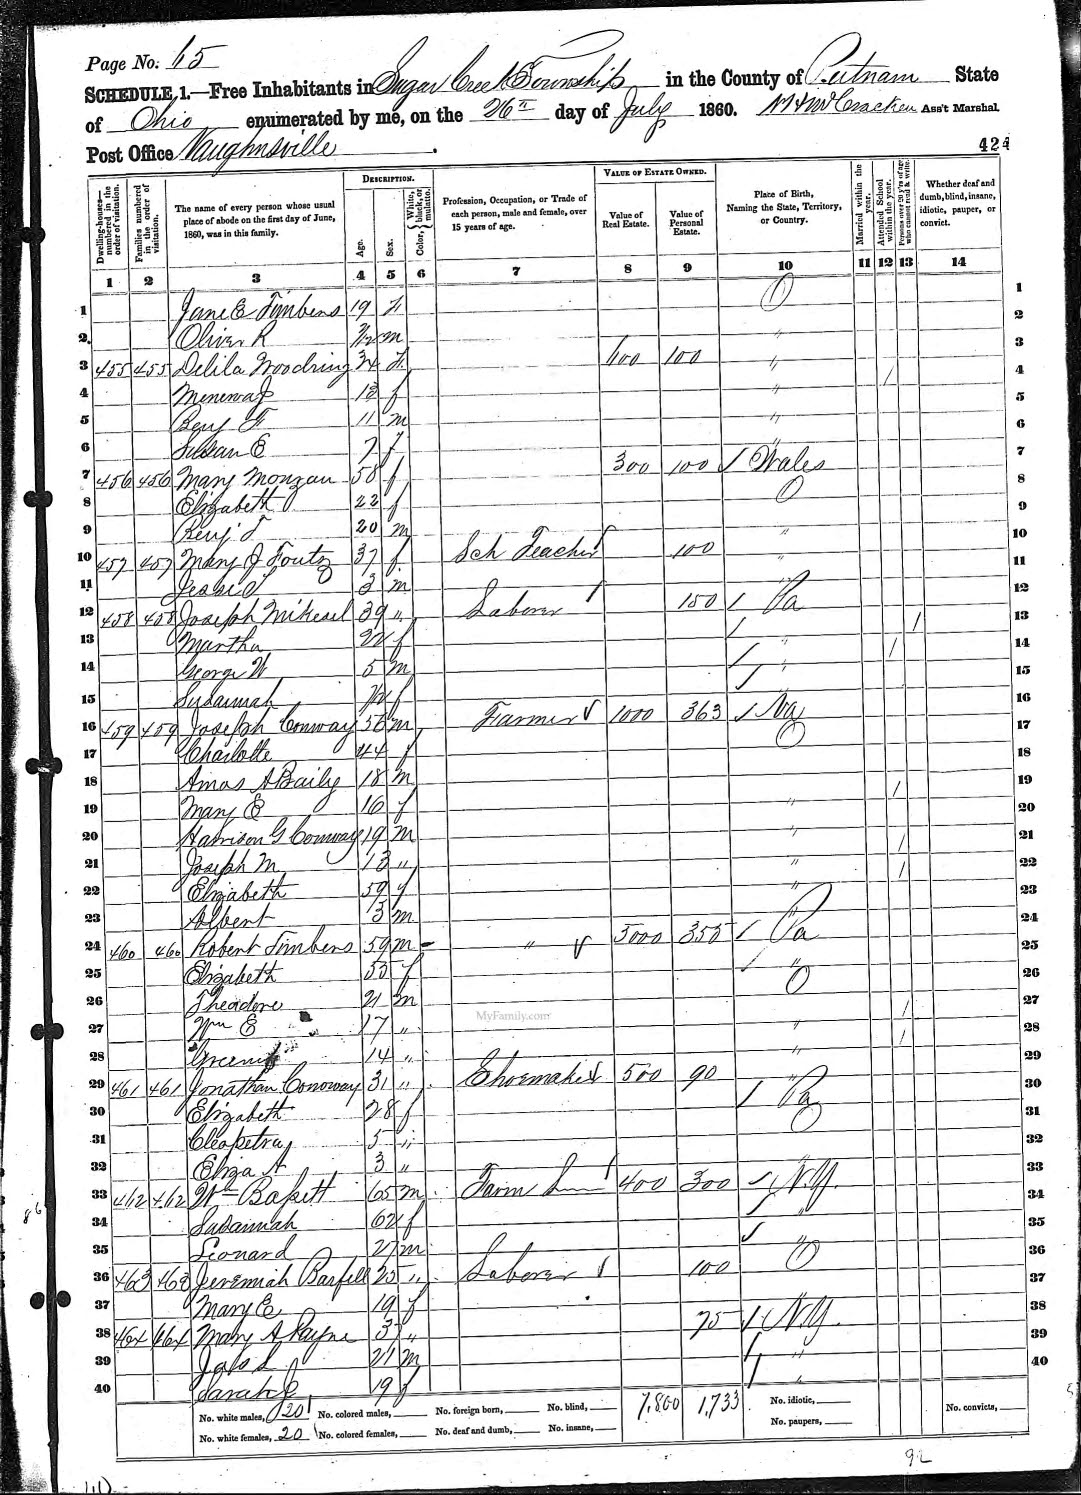 Page No. 65
SCHEDULE 1.—Free Inhabitants in Sugar Creek Township in the County of Putnam State
of Ohio enumerated by me, on the 26th day of July 1860. McCracken Ass't Marshal
Post Office Vaughnsville . 424
Dwelling-houses—numbered in the order of visitation. Families numbered in the order of visitation. The name of every person whose usual place of abode on the first day of June, 1860, was in this family. DESCRIPTION. Age. Sex. Color, White, black, or mulatto. Profession, Occupation, or Trade of each person, male and female, over 15 years of age. VALUE OF ESTATE OWNED. Value of Real Estate. Value of Personal Estate. Place of Birth, Naming the State, Territory, or Country. Married within the year. Attended School within the year. Persons over 20 y'rs of age who cannot read & write. Whether deaf and dumb, blind, insane, idiotic, pauper, or convict.
1 2 3 4 5 6 7 8 9 10 11 12 13 14
1 Jane E Timbens 19 f O 1
2 Oliver R m " 2
3 455 455 Delila Woodring 34 f 600 100 " 3
4 Menerva J 13 f " / 4
5 Benj F 11 m " 5
6 Susan E 7 f " 6
7 456 456 Mary Morgan 58 f 300 100 / Wales 7
8 Elizabeth 22 f O 8
9 Benj T 20 m " 9
10 457 457 Mary J Foutz 37 f Sch Teacher 100 " 10
11 Jesse 3 m " 11
12 458 458 Joseph Mikesel 39 " Laborer 150 / Pa 12
13 Martha f / " / 13
14 George W 5 m / " / 14
15 Susannah f / 15
16 459 459 Joseph Conway 56 m Farmer 1000 363 / Va 16
17 Charlotte 44 f O 17
18 Amos A Baily 18 m 18
19 Mary E 16 f " / 19
20 Harrison G Conway 19 m " 20
21 Joseph M 13 " " / 21
22 Elizabeth 59 f " / 22
23 Albert 3 m " 23
24 460 460 Robert Timbens 59 m " 3000 355 / Pa 24
25 Elizabeth 55 f / " 25
26 Theadore 21 m O 26
27 Wm E 17 " " / 27
28 14 " " / 28
29 461 461 Jonathan Conoway 31 " Shoemaker 500 90 " 29
30 Elizabeth 28 f / Pa 30
31 Cleopetra 5 " O 31
32 Eliza A 3 " 32
33 462 462 Wm 65 m Farm 400 300 / N.Y. 33
34 Susannah 62 f / " 34
35 Leonard 27 m / 35
36 463 463 Jeremiah 25 " Laborer 100 O 36
37 Mary E 19 f 37
38 464 464 Mary A Payne 37 " 75 / N.Y. 38
39 21 m / " 39
40 Sarah 19 f / " 40
No. white males, 20 No. colored males, No. foreign born, No. blind, 7,800 1,733 No. idiotic, No. convicts,
No. white females, 20 No. colored females, No. deaf and dumb, No. insane, No. paupers,
MyFamily.com
86
92